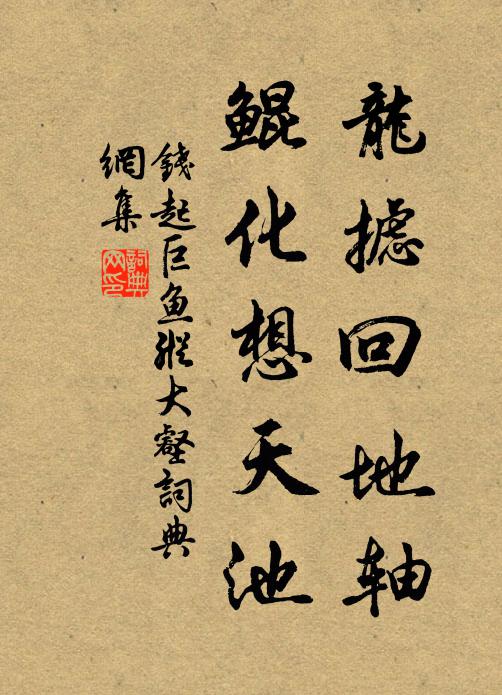 龍攄回地轴
鲲化想天池
錢起巨鱼縱大壑詞典
網集
詞典
网印